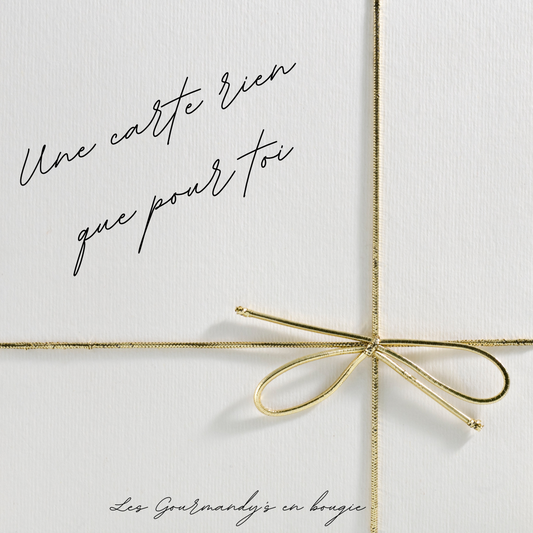 Une carte rien
que pour toi
Les Gourmandy's en bougie